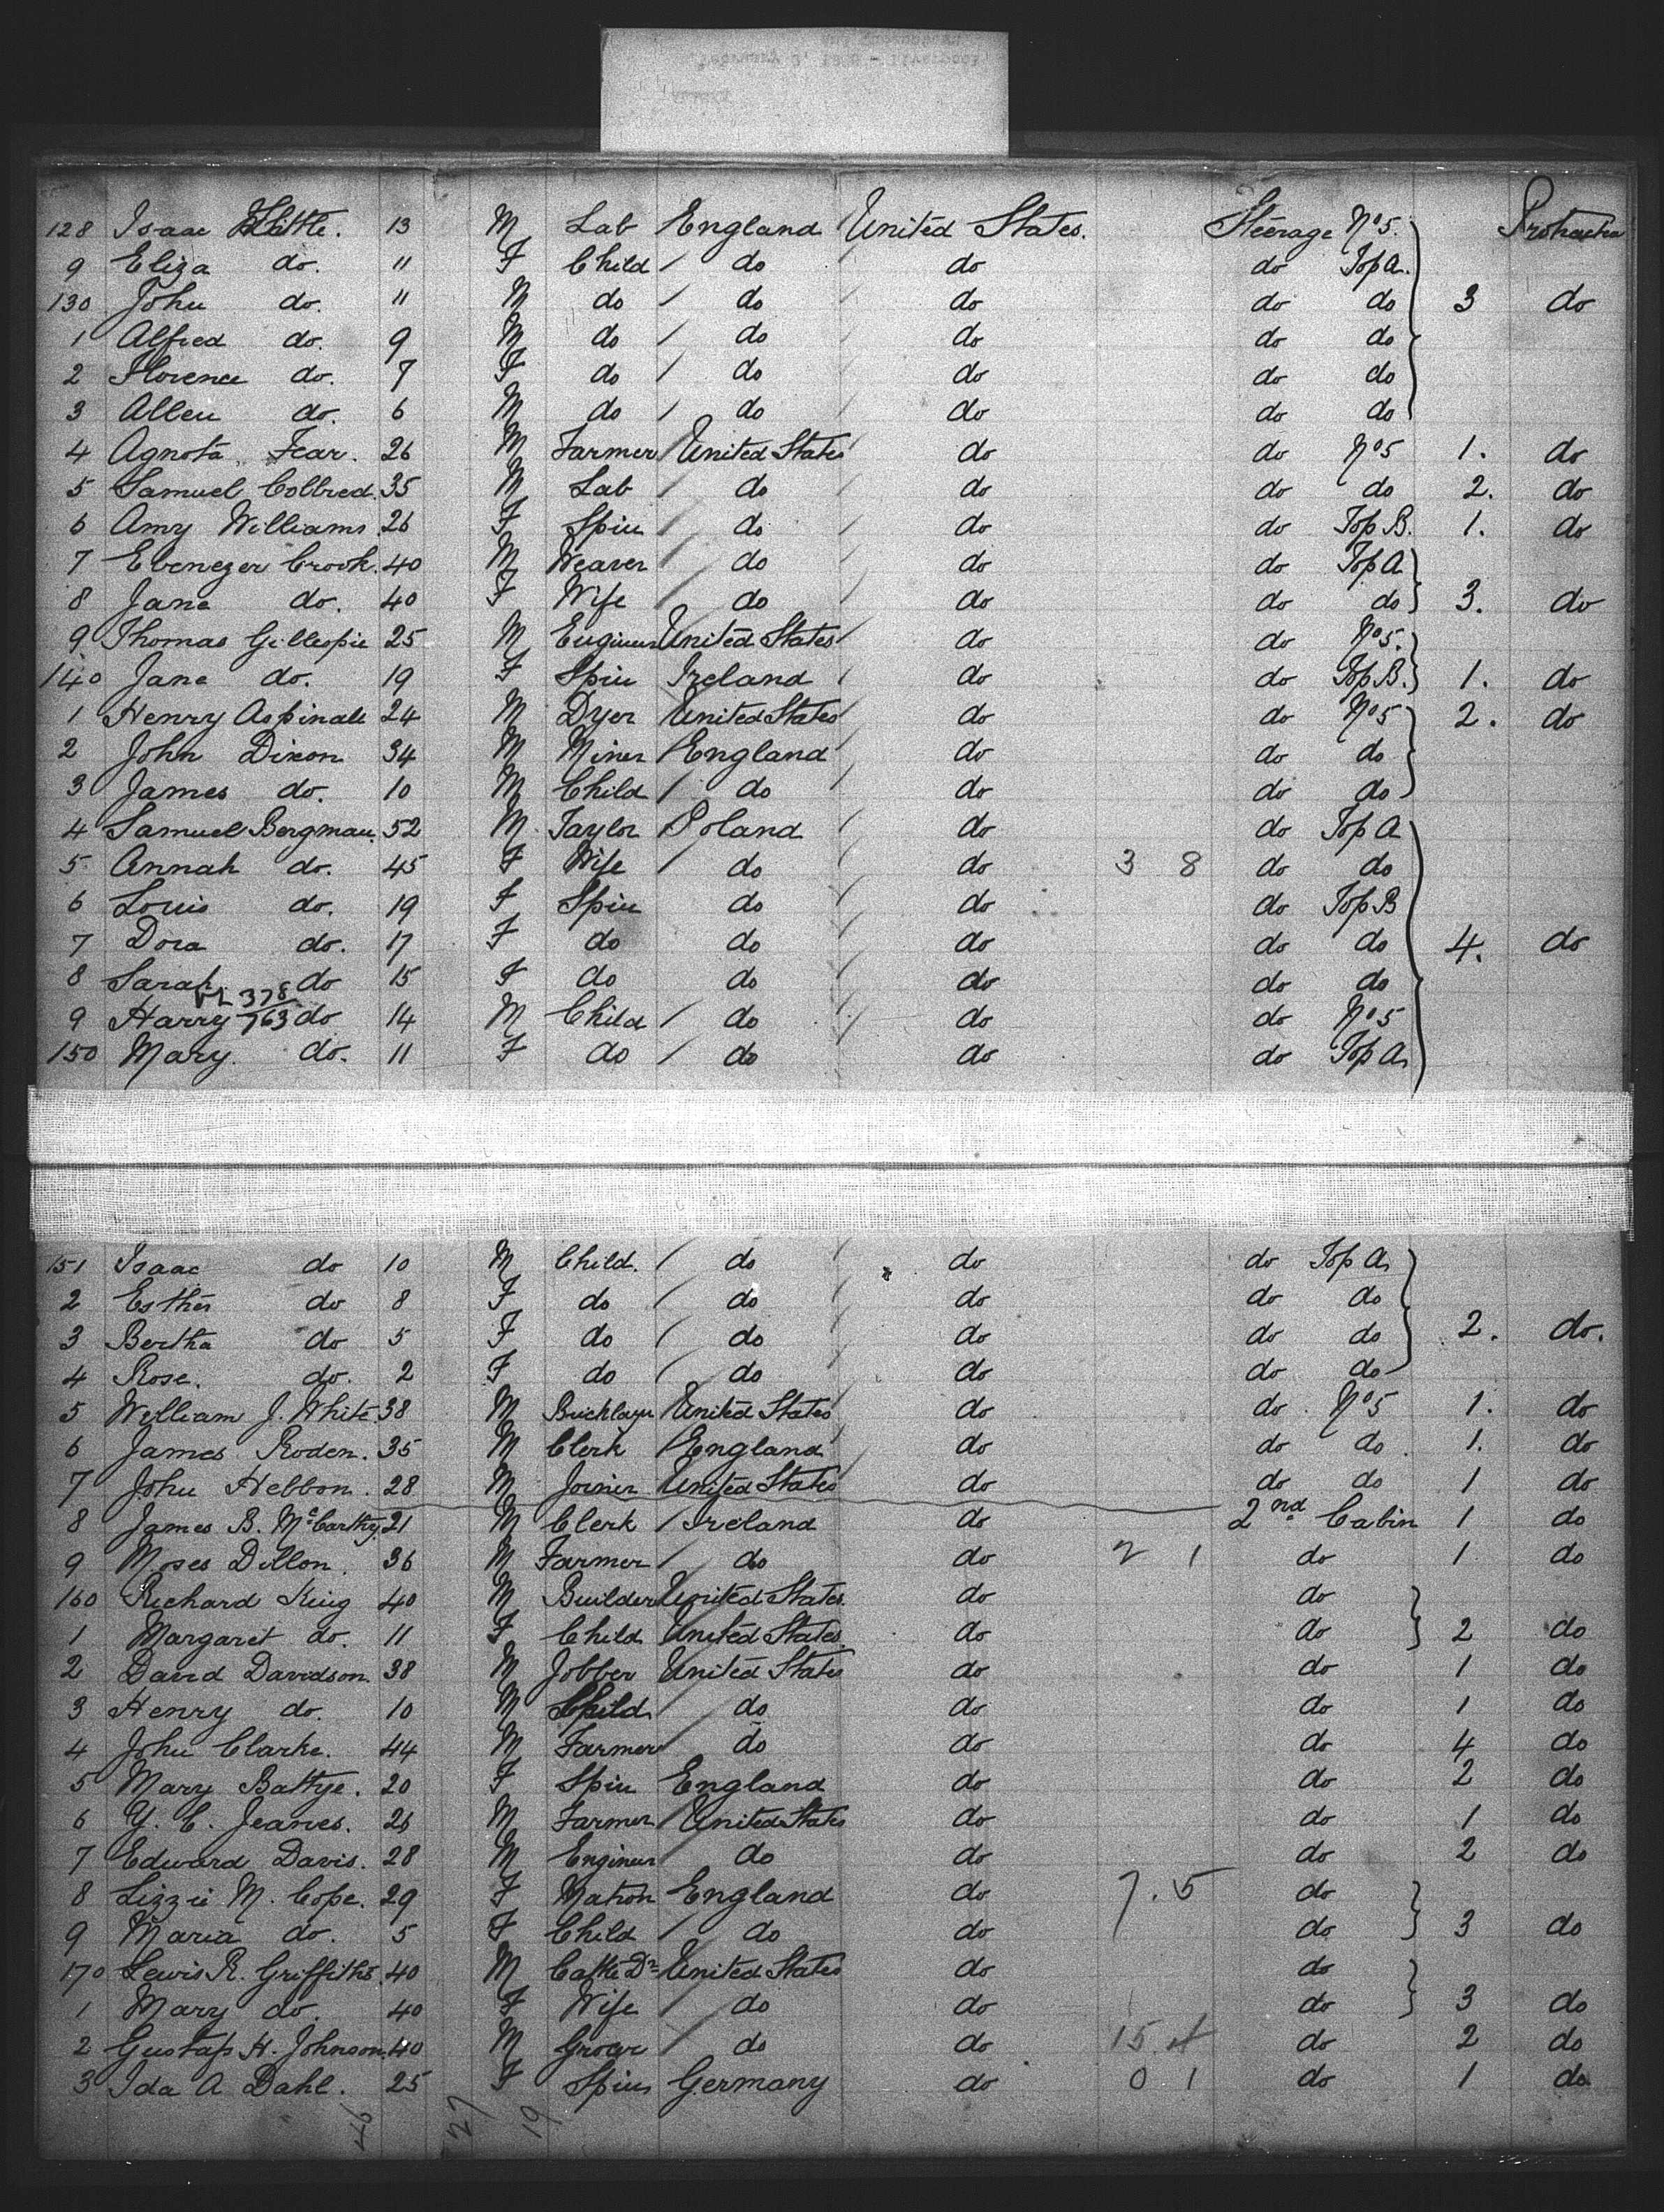 128 Isaac Little. 13 M Lab England United States. Steerage Nº5. Protracted
9 Eliza do. 11 F Child / do do do Top A.
130 John do. 11 M do / do do do do 3 do
1 Alfred do. 9 M do / do do do do
2 Florence do. 7 F do / do do do do
3 Allen do. 6 M do / do do do do
4 Fear. 26 M Farmer United States do do Nº5 1. do
5 Samuel 35 M Lab / do do do do 2. do
6 Amy Williams 26 F Spin do do do Top B. 1. do
7 Ebenezer Crook. 40 M Weaver do do do Top A
8 Jane do. 40 F Wife do do do do 3. do
9. Thomas Gillespie 25 M Engineer United States do do Nº5.
140 Jane do. 19 F Spin Ireland do do Top B. 1. do
1 Henry Aspinall 24 M Dyer United States do do Nº5 2. do
2 John Dixon 34 M Miner England do do do
3 James do. 10 M Child / do do do do
4 Samuel Bergman. 52 M. Taylor Poland do do Top A
5 Annah do. 45 F Wife / do do 3 8 do do
6 Louis do. 19 F Spin do do do Top B
7 Dora do. 17 F do do do do do 4. do
8 Sarah do 15 F do do do do do
378
9 Harry 763 do 14 M Child / do do do Nº5
150 Mary. do. 11 F do / do do do Top A
151 Isaac do 10 M Child. / do do do Top A
2 Esther do 8 F do / do do do do
3 Bertha do 5 F do / do do do do 2. do.
4 Rose. do. 2 F do / do do do do
5 William J. White 38 M Bricklayer United States do do Nº5 1. do
6 James Roden. 35 M Clerk England do do do 1. do
7 John Hebbon. 28 M Joiner United States do do do 1 do
8 James B. McCarthy. 21 M Clerk / Ireland do 2nd Cabin 1 do
9 Moses Dillon. 36 M Farmer / do do 2 1 do 1 do
160 Richard King 40 M Builder United States. do do
1 Margaret do. 11 F Child United States. do do 2 do
2 David Davidson. 38 M Jobber United States do do 1 do
3 Henry do. 10 M Child do do do 1 do
4 John Clarke. 44 M Farmer do do do 4 do
5 Mary Battye. 20 F Spin England do do 2 do
6 Y. C. Jeanes. 26 M Farmer United States do do 1 do
7 Edward Davis. 28 M Engineer do do do 2 do
8 Lizzie M. Cope. 29 F Matron England do 7.5 do
9 Maria do. 5 F Child / do do do 3 do
170 Lewis R. Griffiths. 40 M Cattle Dr United States do do
1 Mary do. 40 F Wife / do do do 3 do
2 Gustaf H. Johnson. 40 M Grocer / do do 15 do 2 do
3 Ida A Dahl. 25 F Spin Germany do 0 1 do 1 do
46 27 19